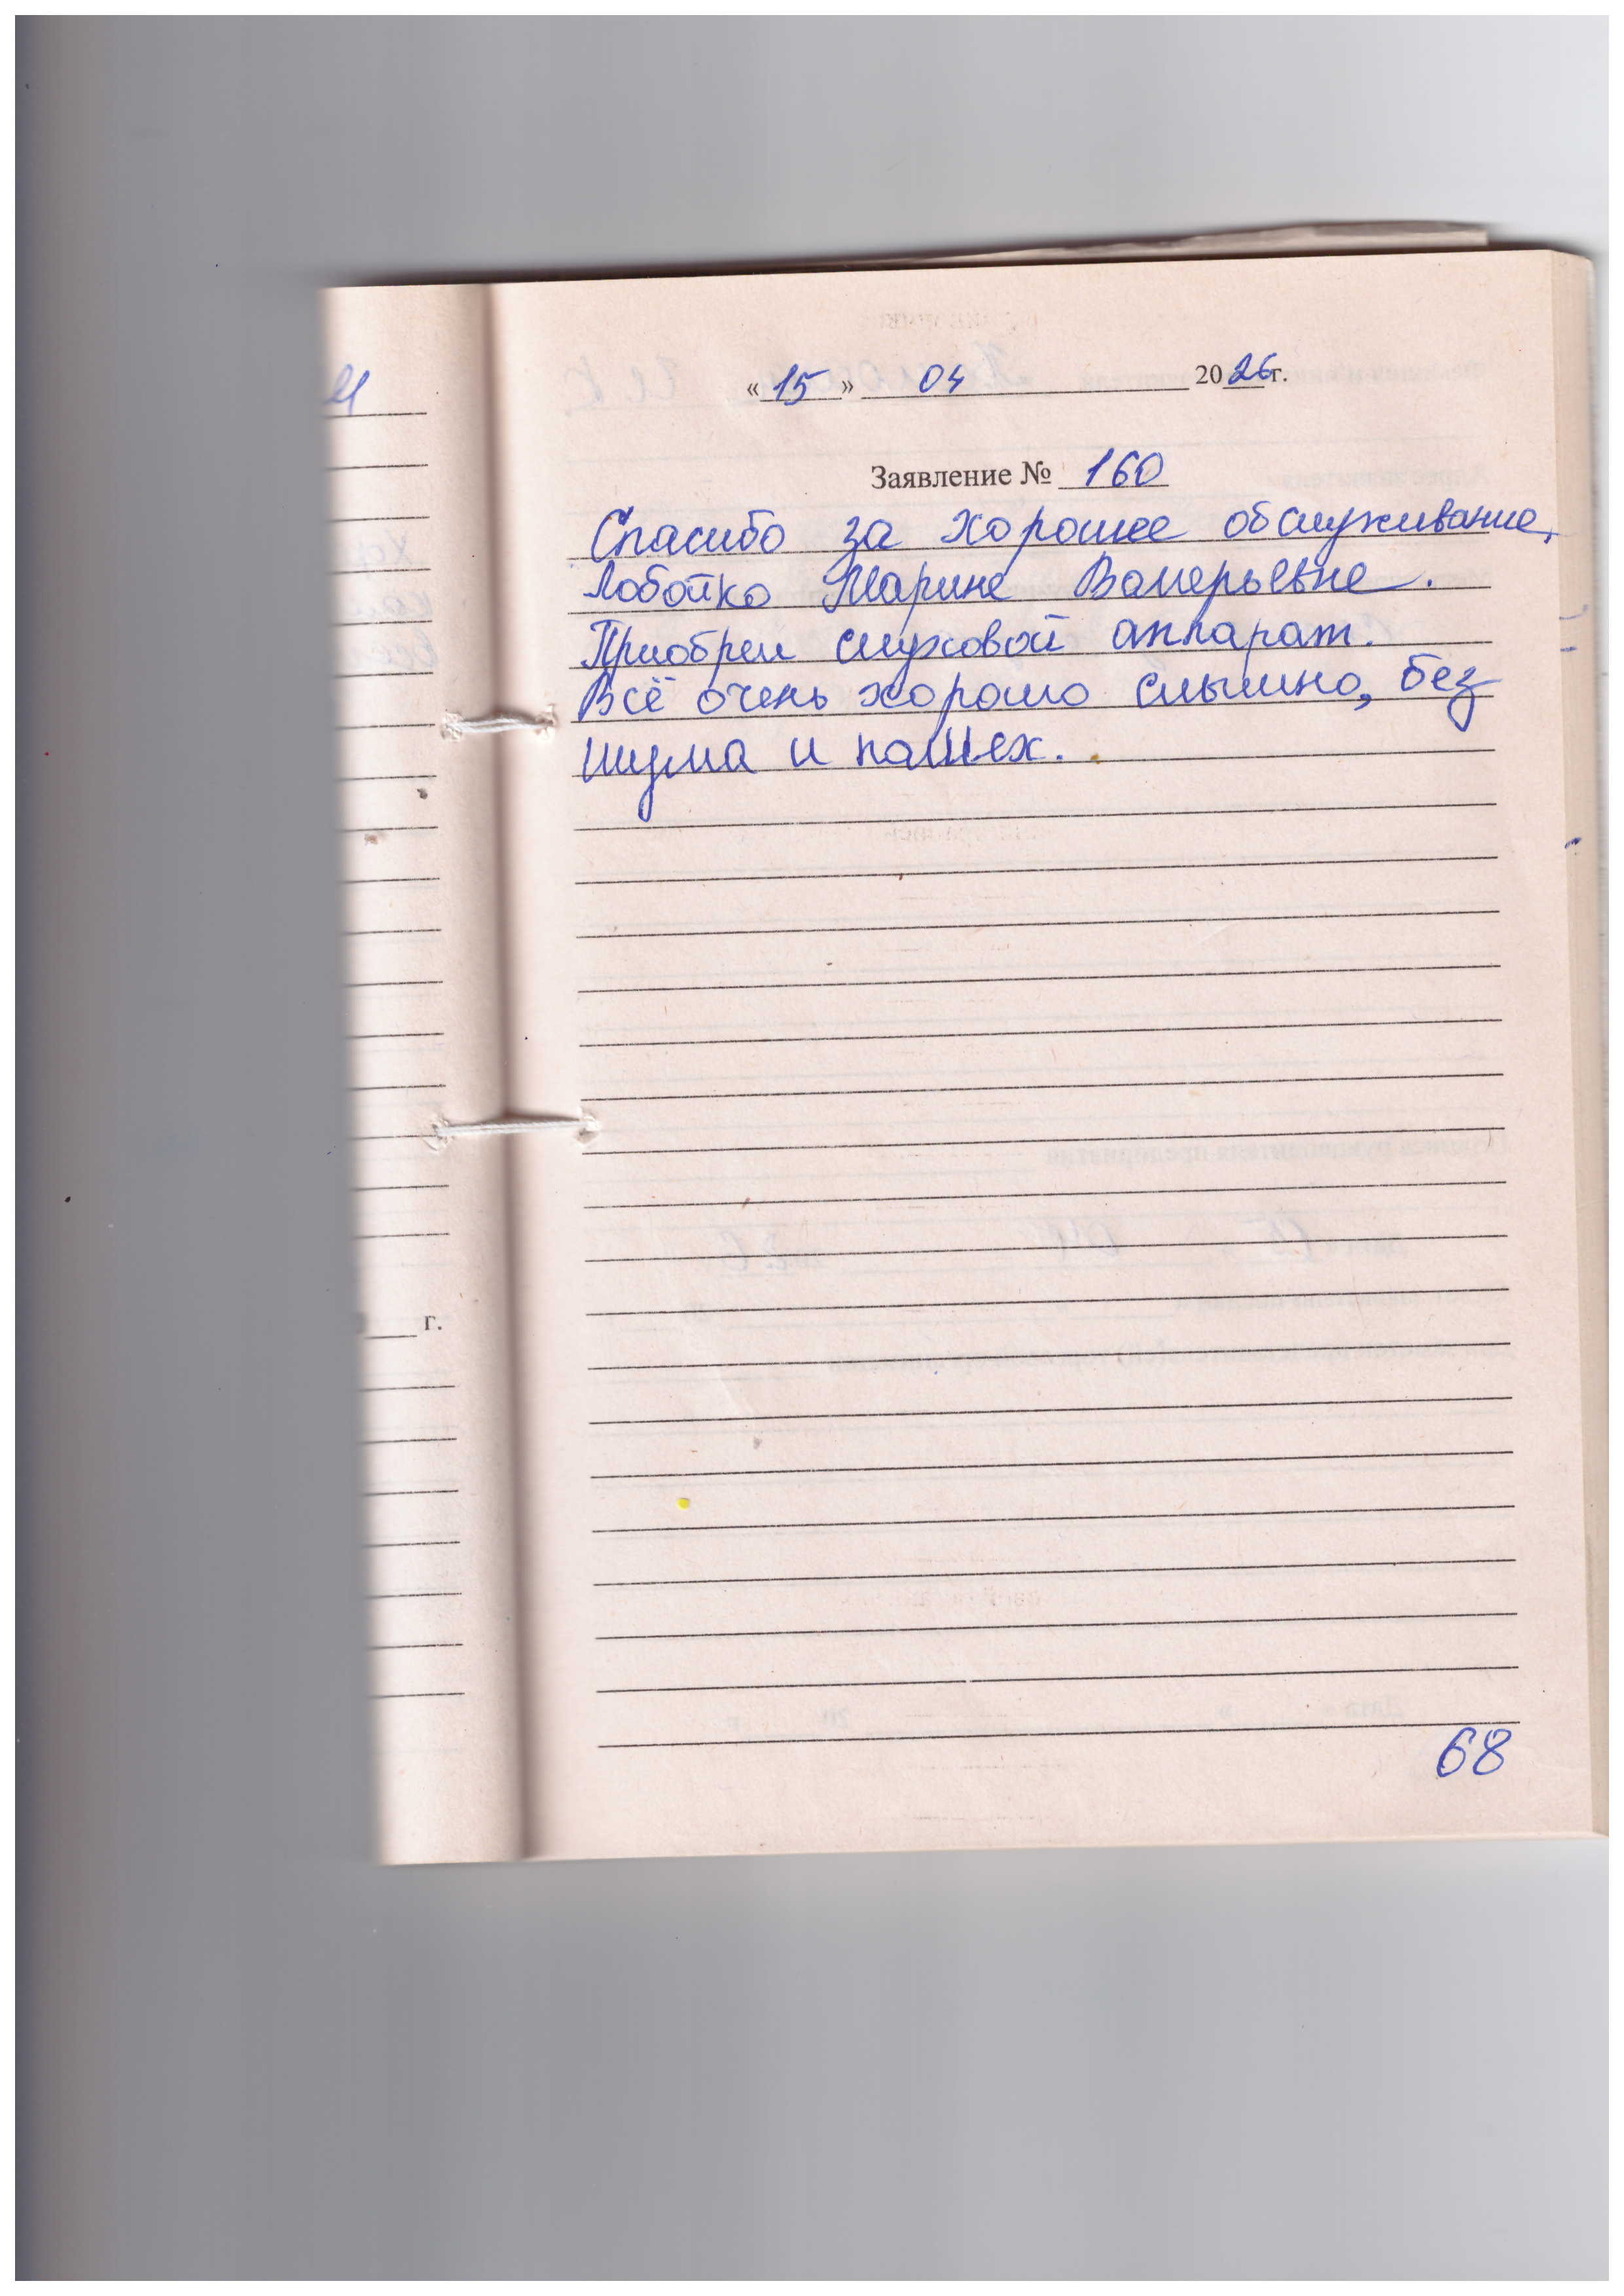 « 15 » 04 2026 г.
Заявление № 160
Спасибо за хорошее обслуживание,
Лобойко Марине Валерьевне.
Приобрел слуховой аппарат.
Всё очень хорошо слышно, без
шума и помех.
г.
68